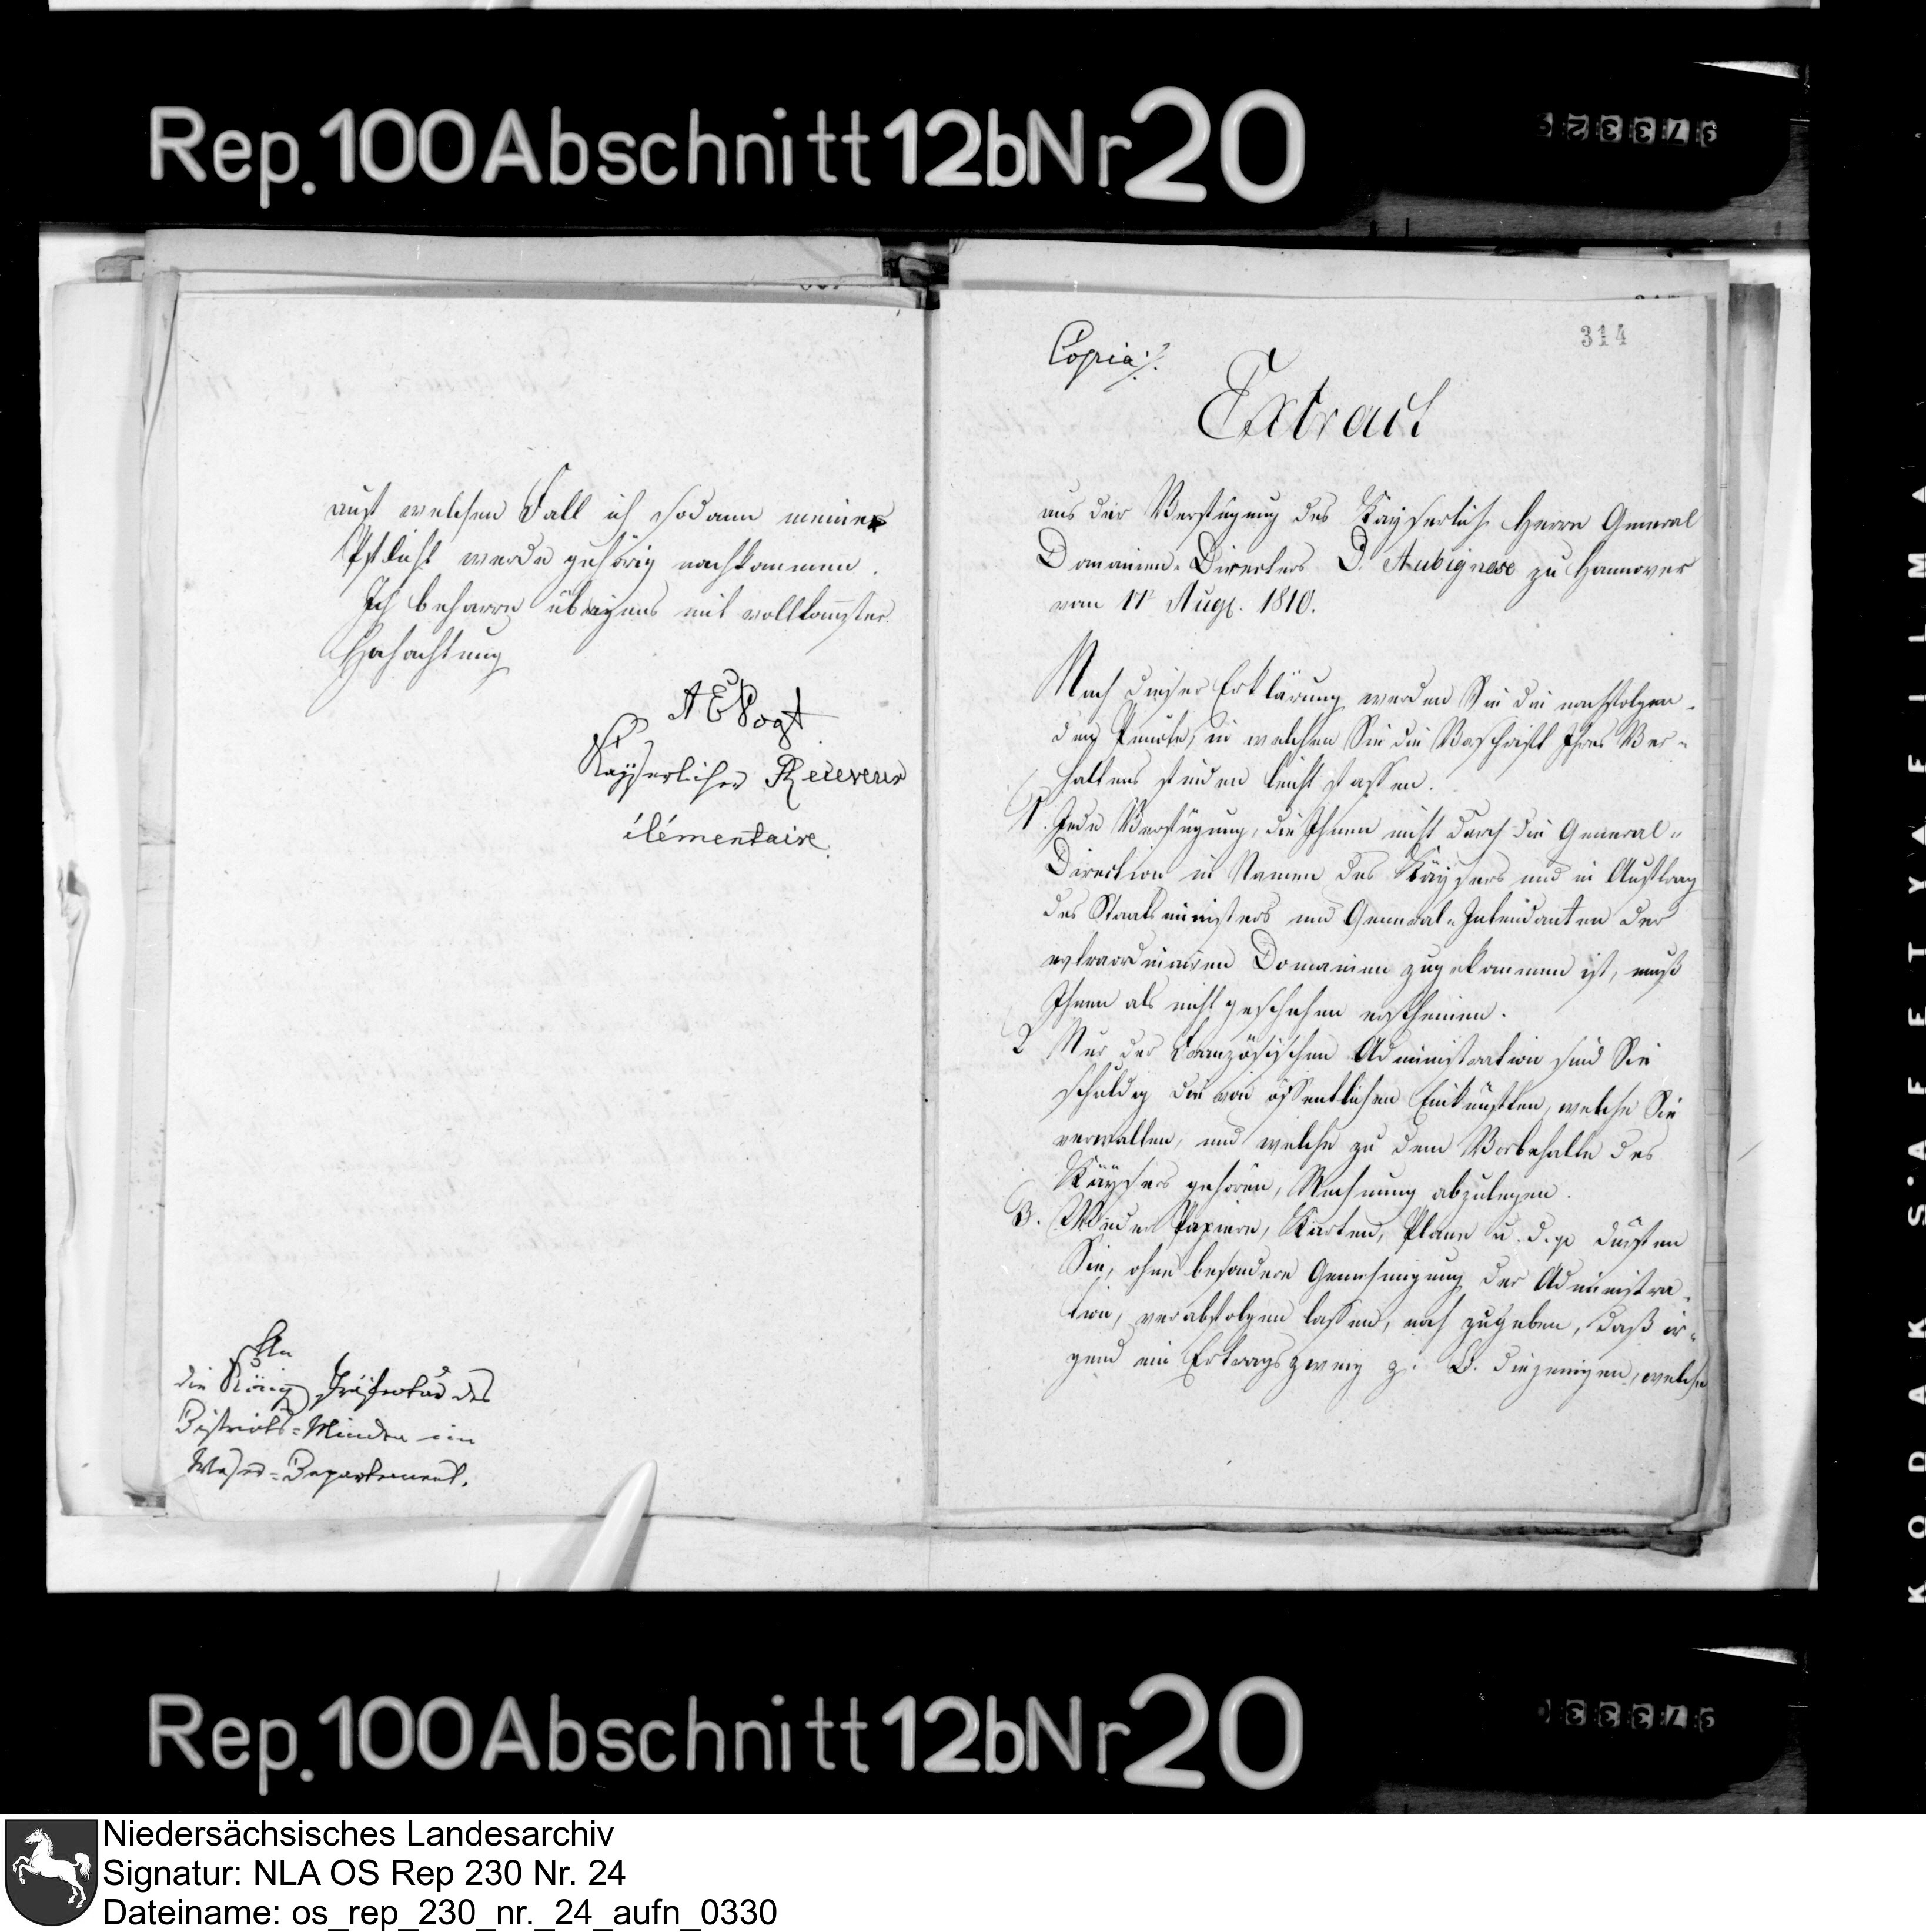 Rep. 100 Abschnitt 12b Nr 20
auf welchen Fall ich sodann meiner
Pflicht werde gehörig nachkommen.
Ich beharre übrigens mit vollkomster
Hochachtung
AEVogt
Kayserlicher Receveur
élémentaire.
An
die Königl Präfectur des
Districts-Minden im
Weser-Departement.
314
Copia
Extract
aus der Verfügung des Kayserlich Herrn General
Domainen-Directers D'Aubignose zu Hannover
vom 11t Augt. 1810.
Nach dieser Erklärung werden Sie die nachfolgen-
den Puncte, in welchen Sie die Vorschrift Ihres Ver-
haltens finden leicht fassen.
1. Jede Verfügung, die Ihnen nicht durch die General-
Direction im Namen des Käysers und in Auftrag
des Staatsministers und General-Intendanten der
extraordinairen Domainen zugekommen ist, muß
Ihnen als nicht geschehen erscheinen.
2 Nur der Französischen Administration sind Sie
schuldig von öffentlichen Einkünften, welche Sie
verwalten, und welche zu dem Vorbehalte des
Käysers gehören, Rechnung abzulegen.
3. Weder Papiere, Karten, Plane u. d. g. dürfen
Sie, ohne besondere Genehmigung der Administra-
tion, verabfolgen lassen, noch zugeben, daß ir-
gend ein Ertragszweig z. B. diejenigen, welche
KODAK SAFETY FILM A
Rep. 100 Abschnitt 12b Nr 20
Niedersächsisches Landesarchiv
Signatur: NLA OS Rep 230 Nr. 24
Dateiname: os_rep_230_nr._24_aufn_0330